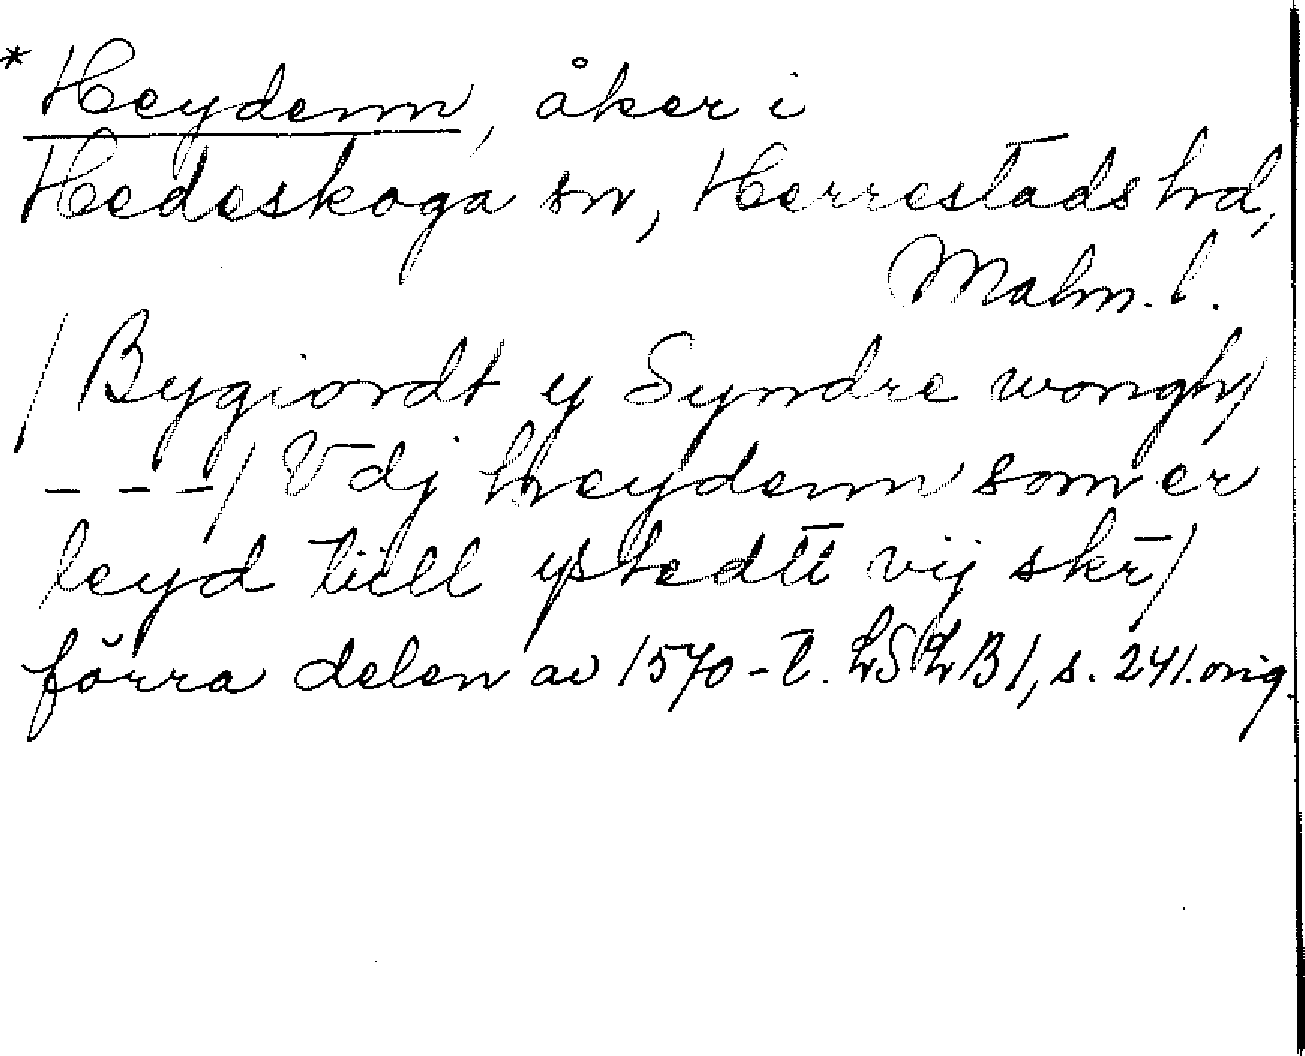 * Heydenn, åker i
Hedeskoga sn, Herrestads hd,
Malm. l.
/ Bygiordt y Syndre wongh /
- - - / Vdj heydenn som er
leyd tiill ystedtt vij skr /
förra delen av 1570-t. LSLB1, s. 241. orig.